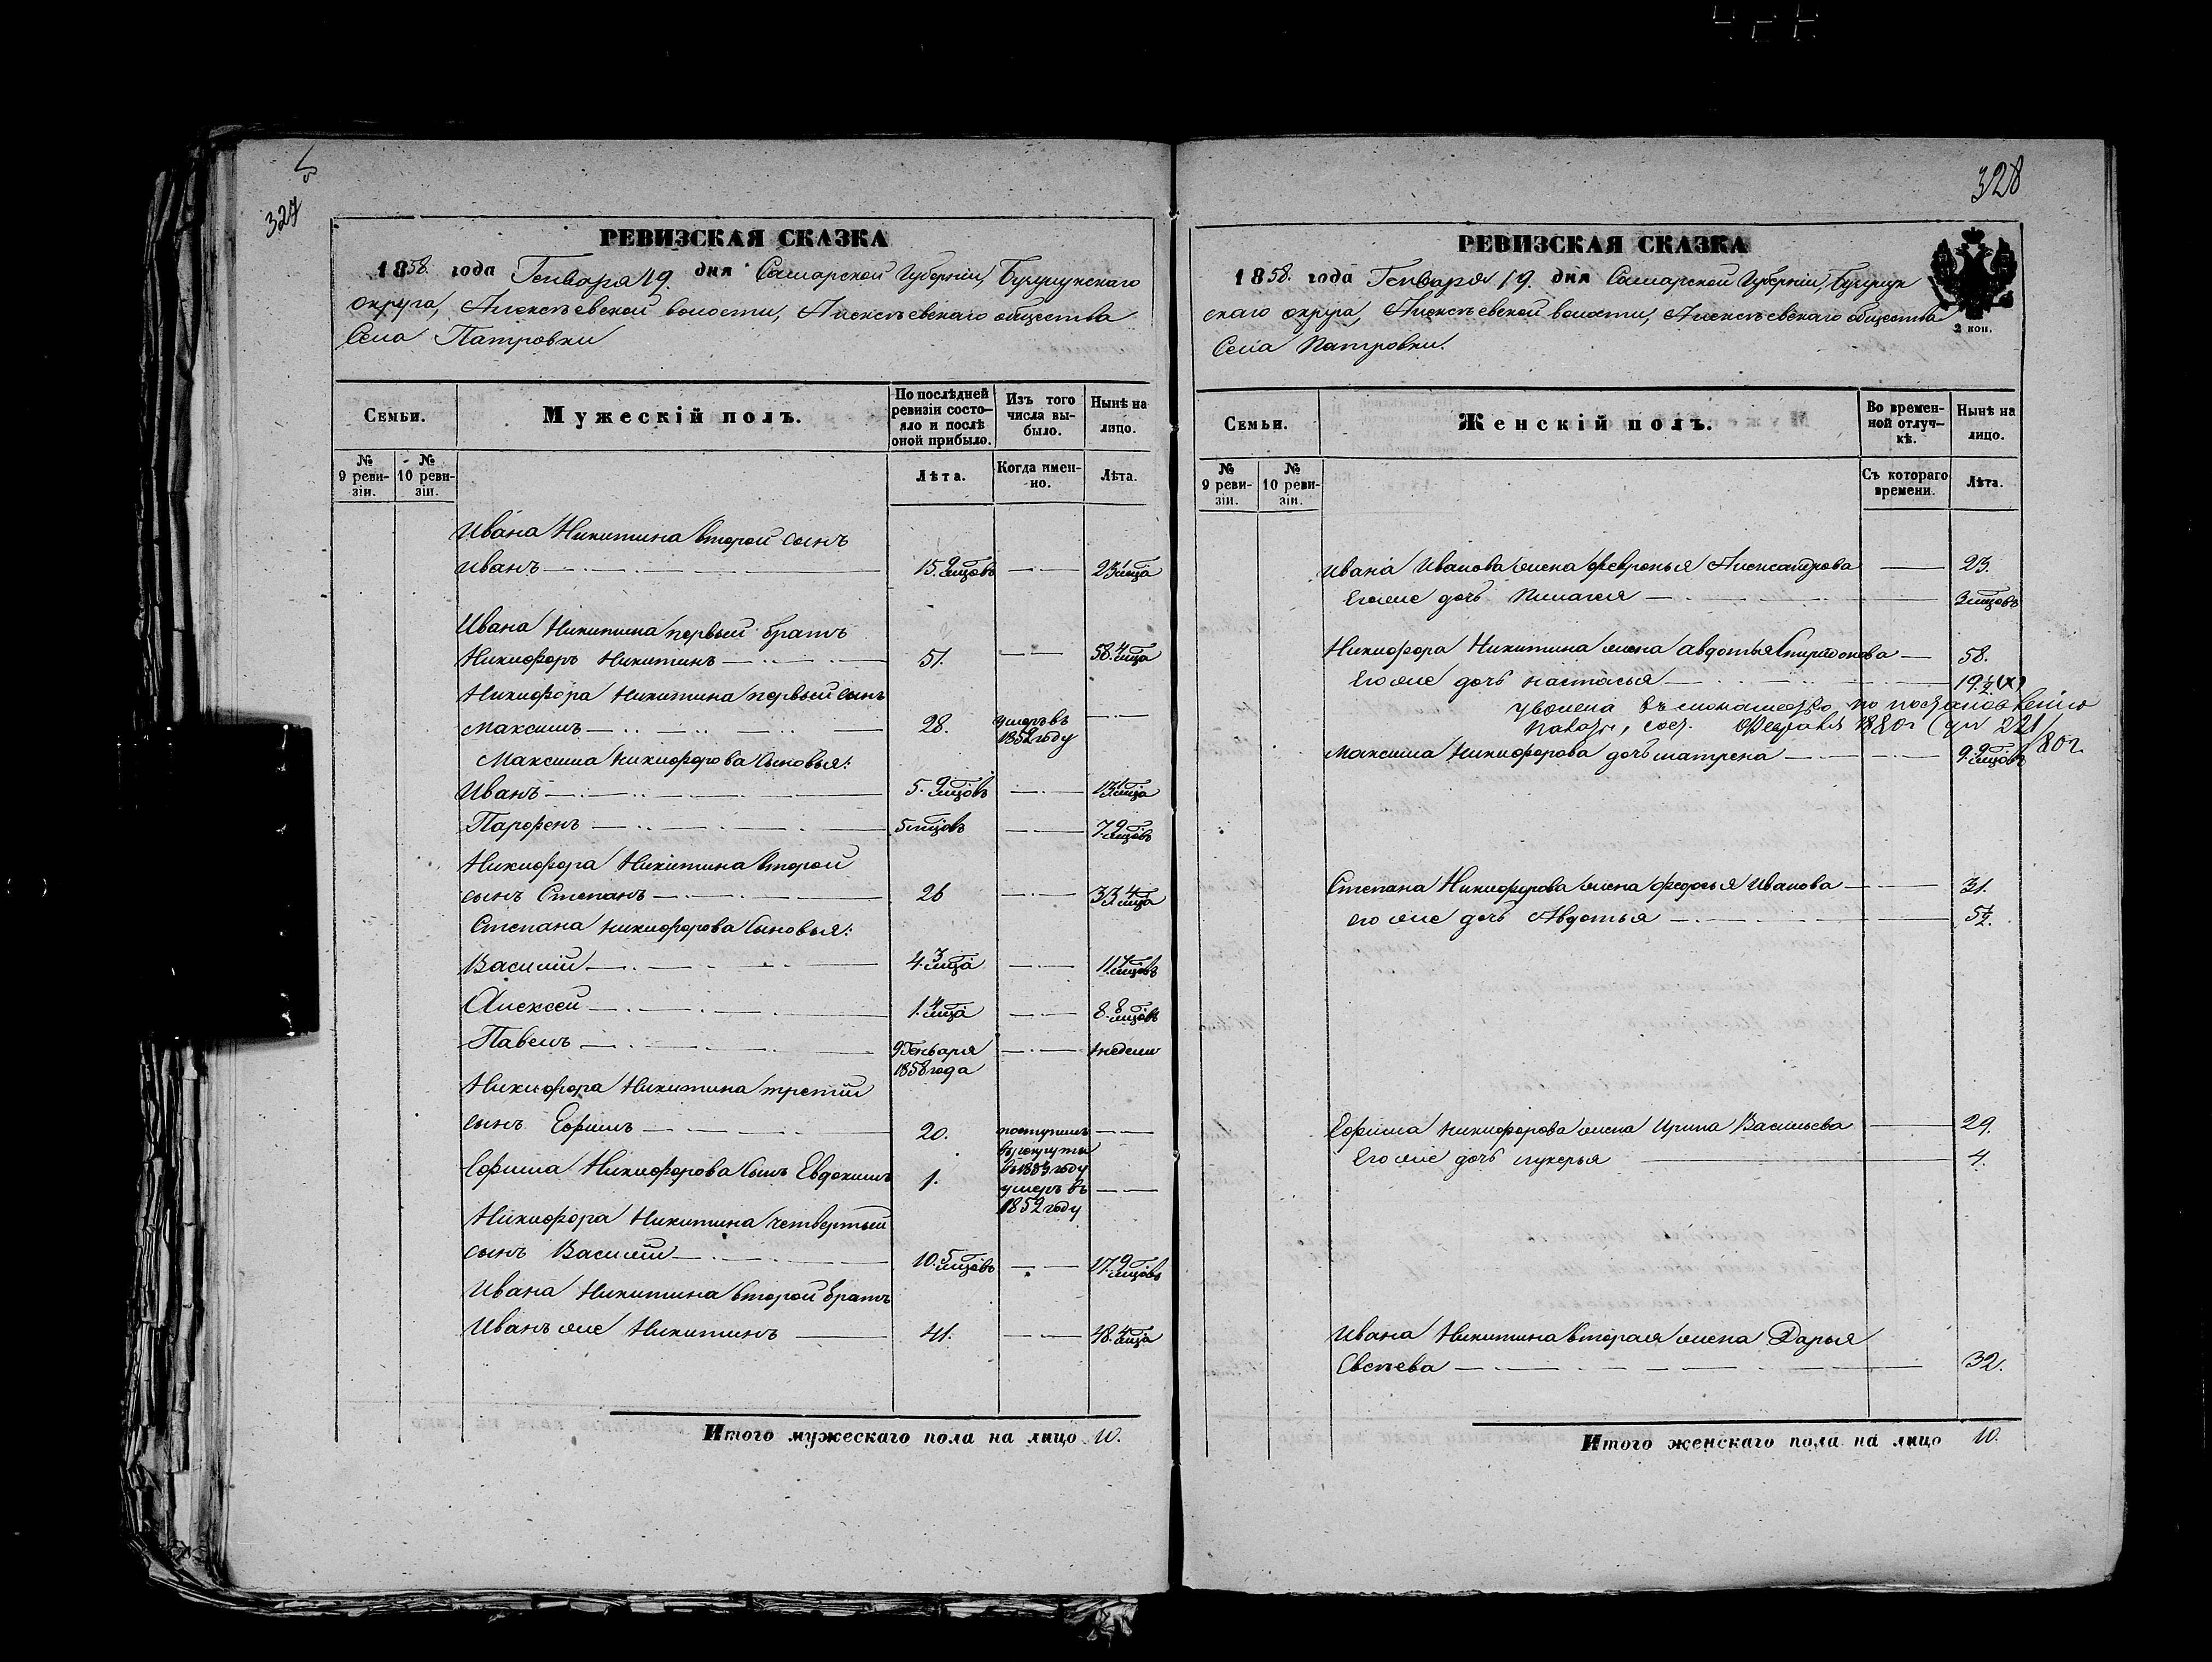 327
РЕВИЗСКАЯ СКАЗКА
1858. года Генваря 19. дня Самарской Губерніи, Бузулукскаго
округа, Алексѣевской волости, Алексѣевскаго общества
Села Патровки
Семьи.
Мужескій полъ.
По послѣдней ревизіи состо-
яло и послѣ оной прибыло.
Изъ того числа вы-
было.
Нынѣ на лицо.
№ 9 реви-
зіи.
№ 10 реви-
зіи.
Лѣта.
Когда имен-
но.
Лѣта.
Ивана Никитина второй сынъ
Иванъ 15. 9 мцовъ 23 1 мца
Ивана Никитина первый братъ
Никифоръ Никитинъ 51. 58. 4 мца
Никифора Никитина первый сынъ
Максимъ 28. умеръ въ 1852 году
Максима Никифорова сыновья:
Иванъ 5. 9 мцовъ 13. 1 мца
Парфенъ 5 мцовъ 7. 9 мцовъ
Никифора Никитина второй
сынъ Степанъ 26 33. 4 мца
Степана Никифорова сыновья:
Василій 4. 3 мца 11. 7 мцовъ
Алексей 1. 4 мца 8. 8 мцовъ
Павелъ 9 Генваря 1858 года недели
Никифора Никитина третій
сынъ Ефимъ 20. поступилъ въ рекруты въ году
Ефима Никифорова сынъ Евдокимъ 1. умеръ въ 1852 году
Никифора Никитина четвертый
сынъ Василій 10. 5 мцовъ 17. 9 мцовъ
Ивана Никитина второй братъ
Иванъ же Никитинъ 41. 48. 4 мца
Итого мужескаго пола на лицо 10.
328
РЕВИЗСКАЯ СКАЗКА
1858. года Генваря 19. дня Самарской Губерніи, Бузулук
скаго округа, Алексѣевской волости, Алексѣевскаго общества
Села Патровки.
2 коп.
Семьи.
Женскій полъ.
Во времен-
ной отлуч-
кѣ.
Нынѣ на лицо.
№ 9 реви-
зіи.
№ 10 реви-
зіи.
Съ котораго времени.
Лѣта.
Ивана Иванова жена Февронья Александрова 23.
Его же дочь Пилагея 3 мцовъ
Никифора Никитина жена Авдотья Спиридонова 58.
Его же дочь Настасья 19. ½ (х)
уволена въ монашество, по постановленію
Февраля 1880 г
80 г.
Максима Никифорова дочь Матрена 9. 9 мцовъ
Степана Никифорова жена Федосья Иванова 31.
его же дочь Авдотья 5 ½.
Ефима Никифорова жена Ирина Васильева 29.
Его же дочь Лукерья 4.
Ивана Никитина вторая жена Дарья
Евсѣева 32.
Итого женскаго пола на лицо 10.